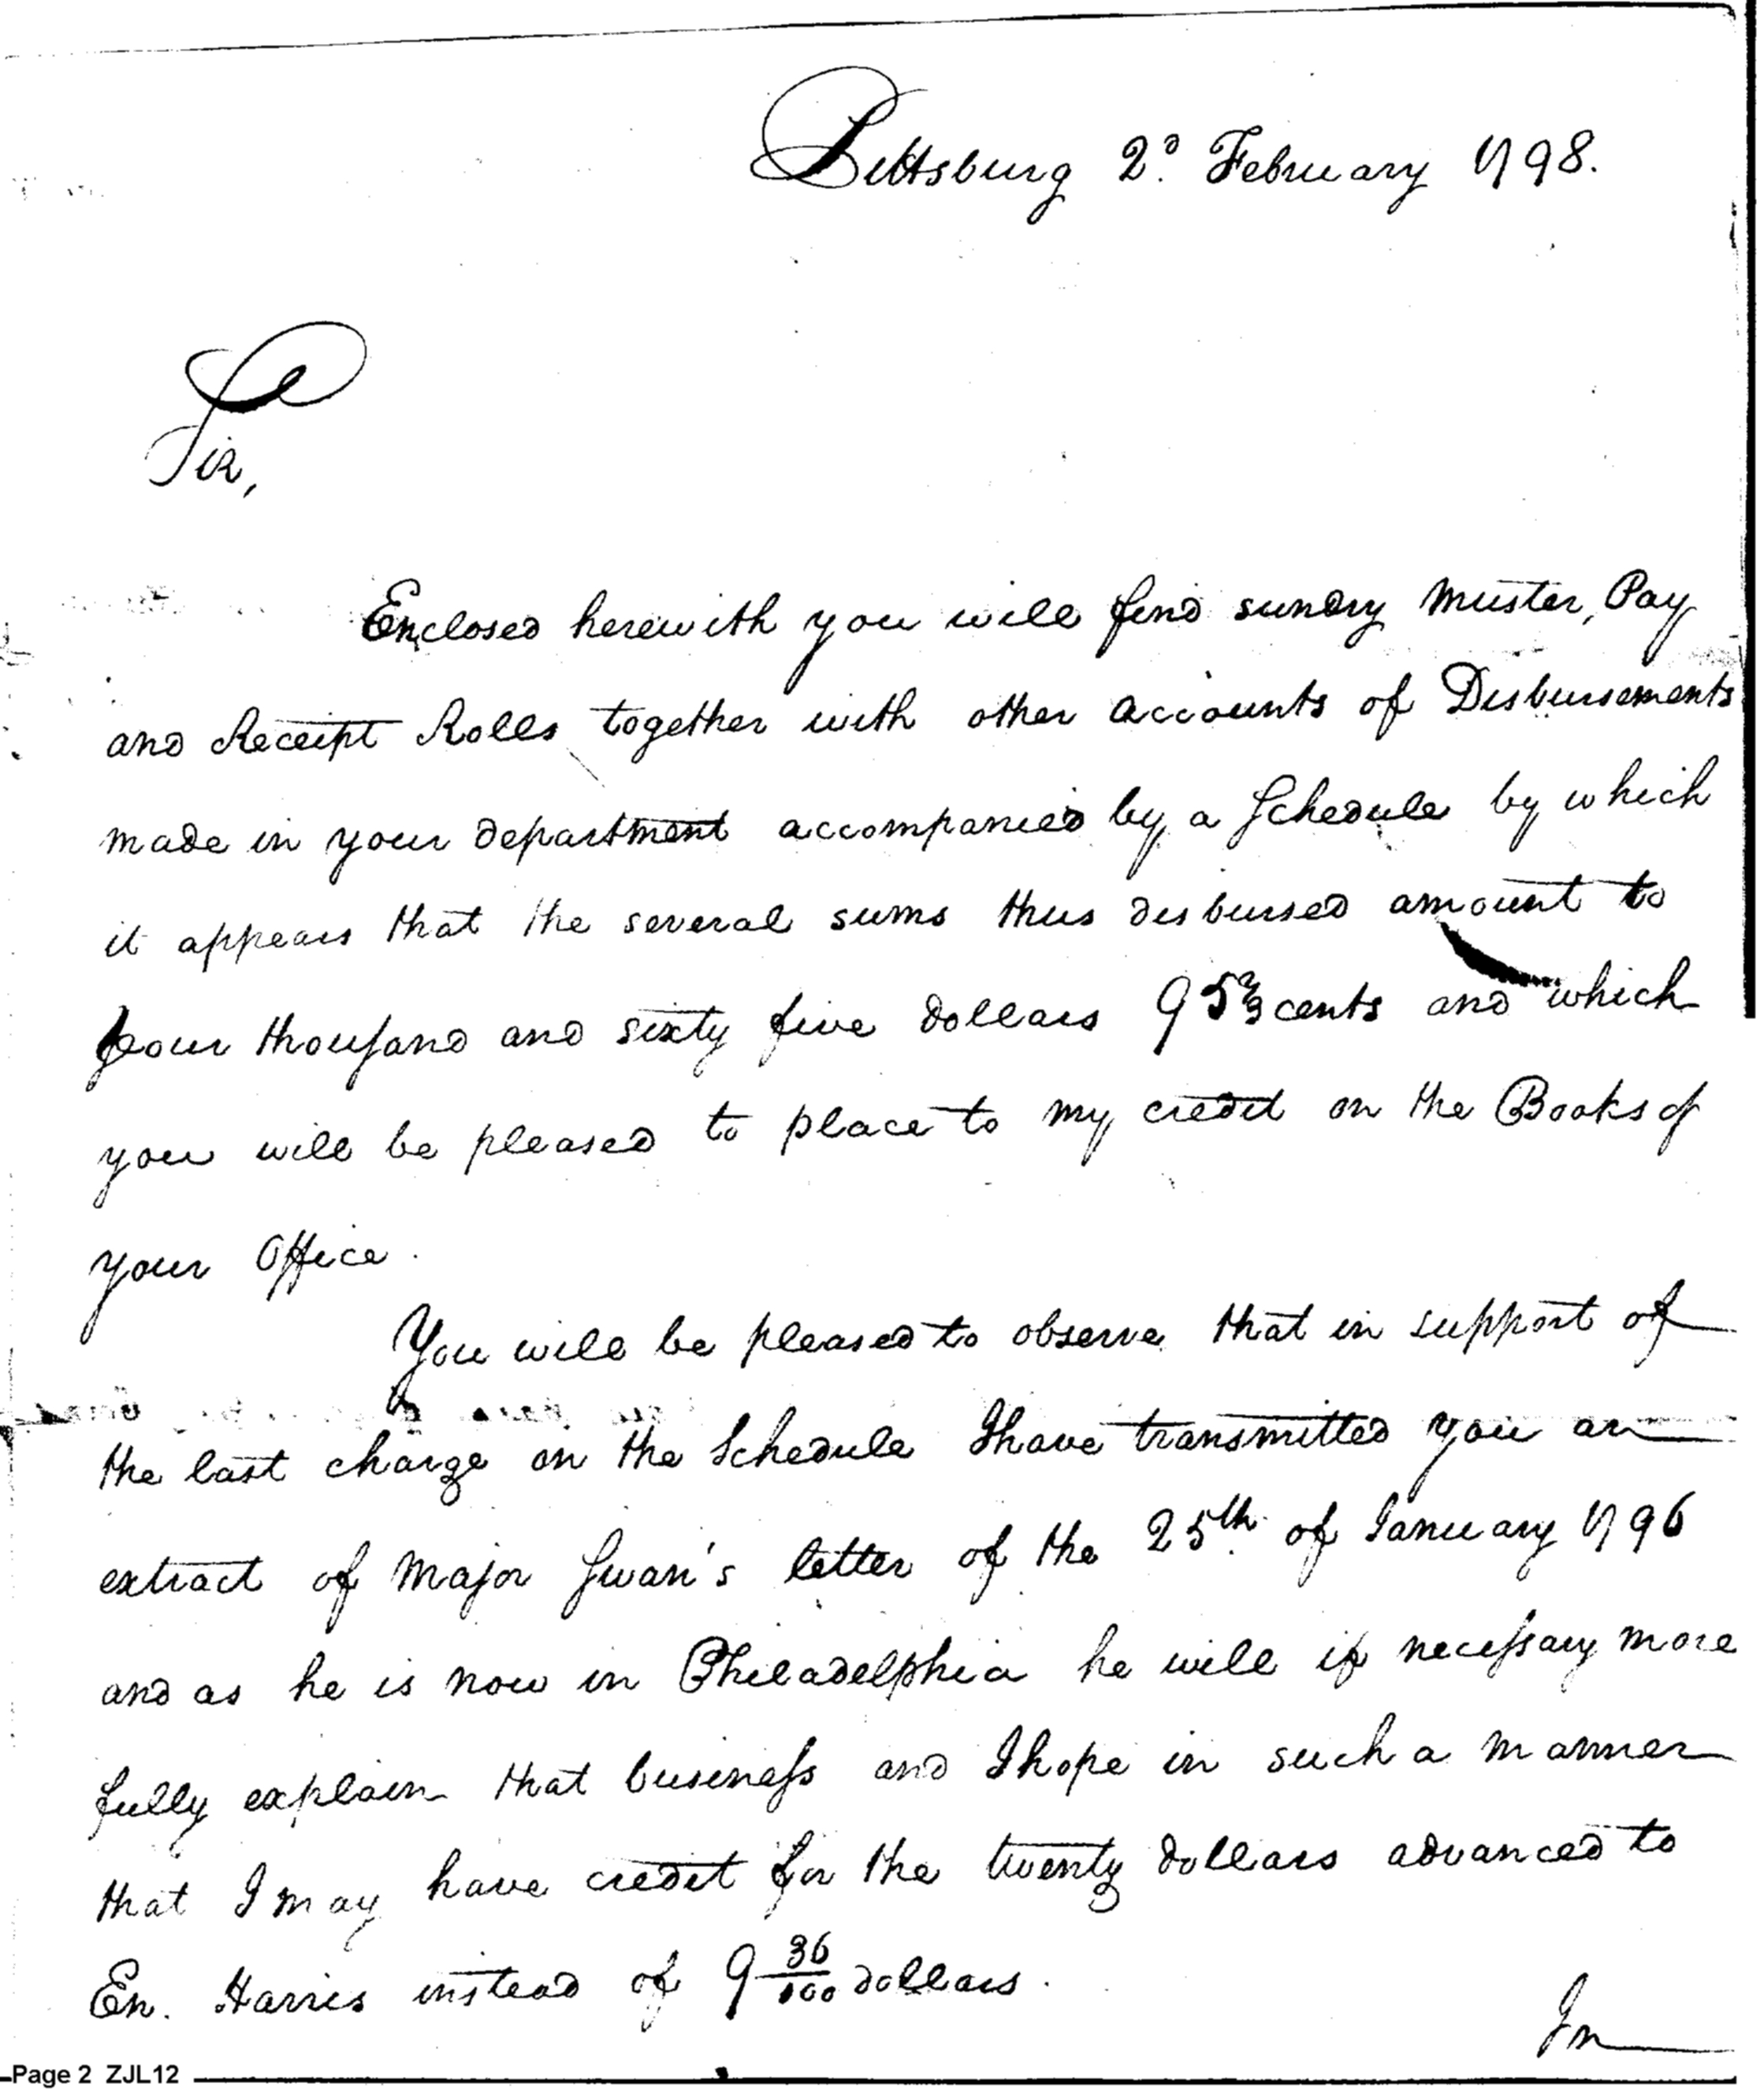 Pittsburg 2d. February 1798.
Sir,
Enclosed herewith you will find sundry Muster, Pay
and Receipt Rolls together with other accounts of Disbursements
made in your department accompanied by a Schedule by which
it appears that the several sums thus disbursed amount to
four thousand and sixty five dollars 95 2/3 cents and which
you will be pleased to place to my credit on the Books of
your Office.
You will be pleased to observe that in support of
the last charge on the Schedule I have transmitted you an
extract of Major Swan's letter of the 25th. of January 1796
and as he is now in Philadelphia he will if necessary more
fully explain that business and I hope in such a manner
that I may have credit for the twenty dollars advanced to
En. Harris instead of 9 36/100 dollars.
In
Page 2 ZJL12